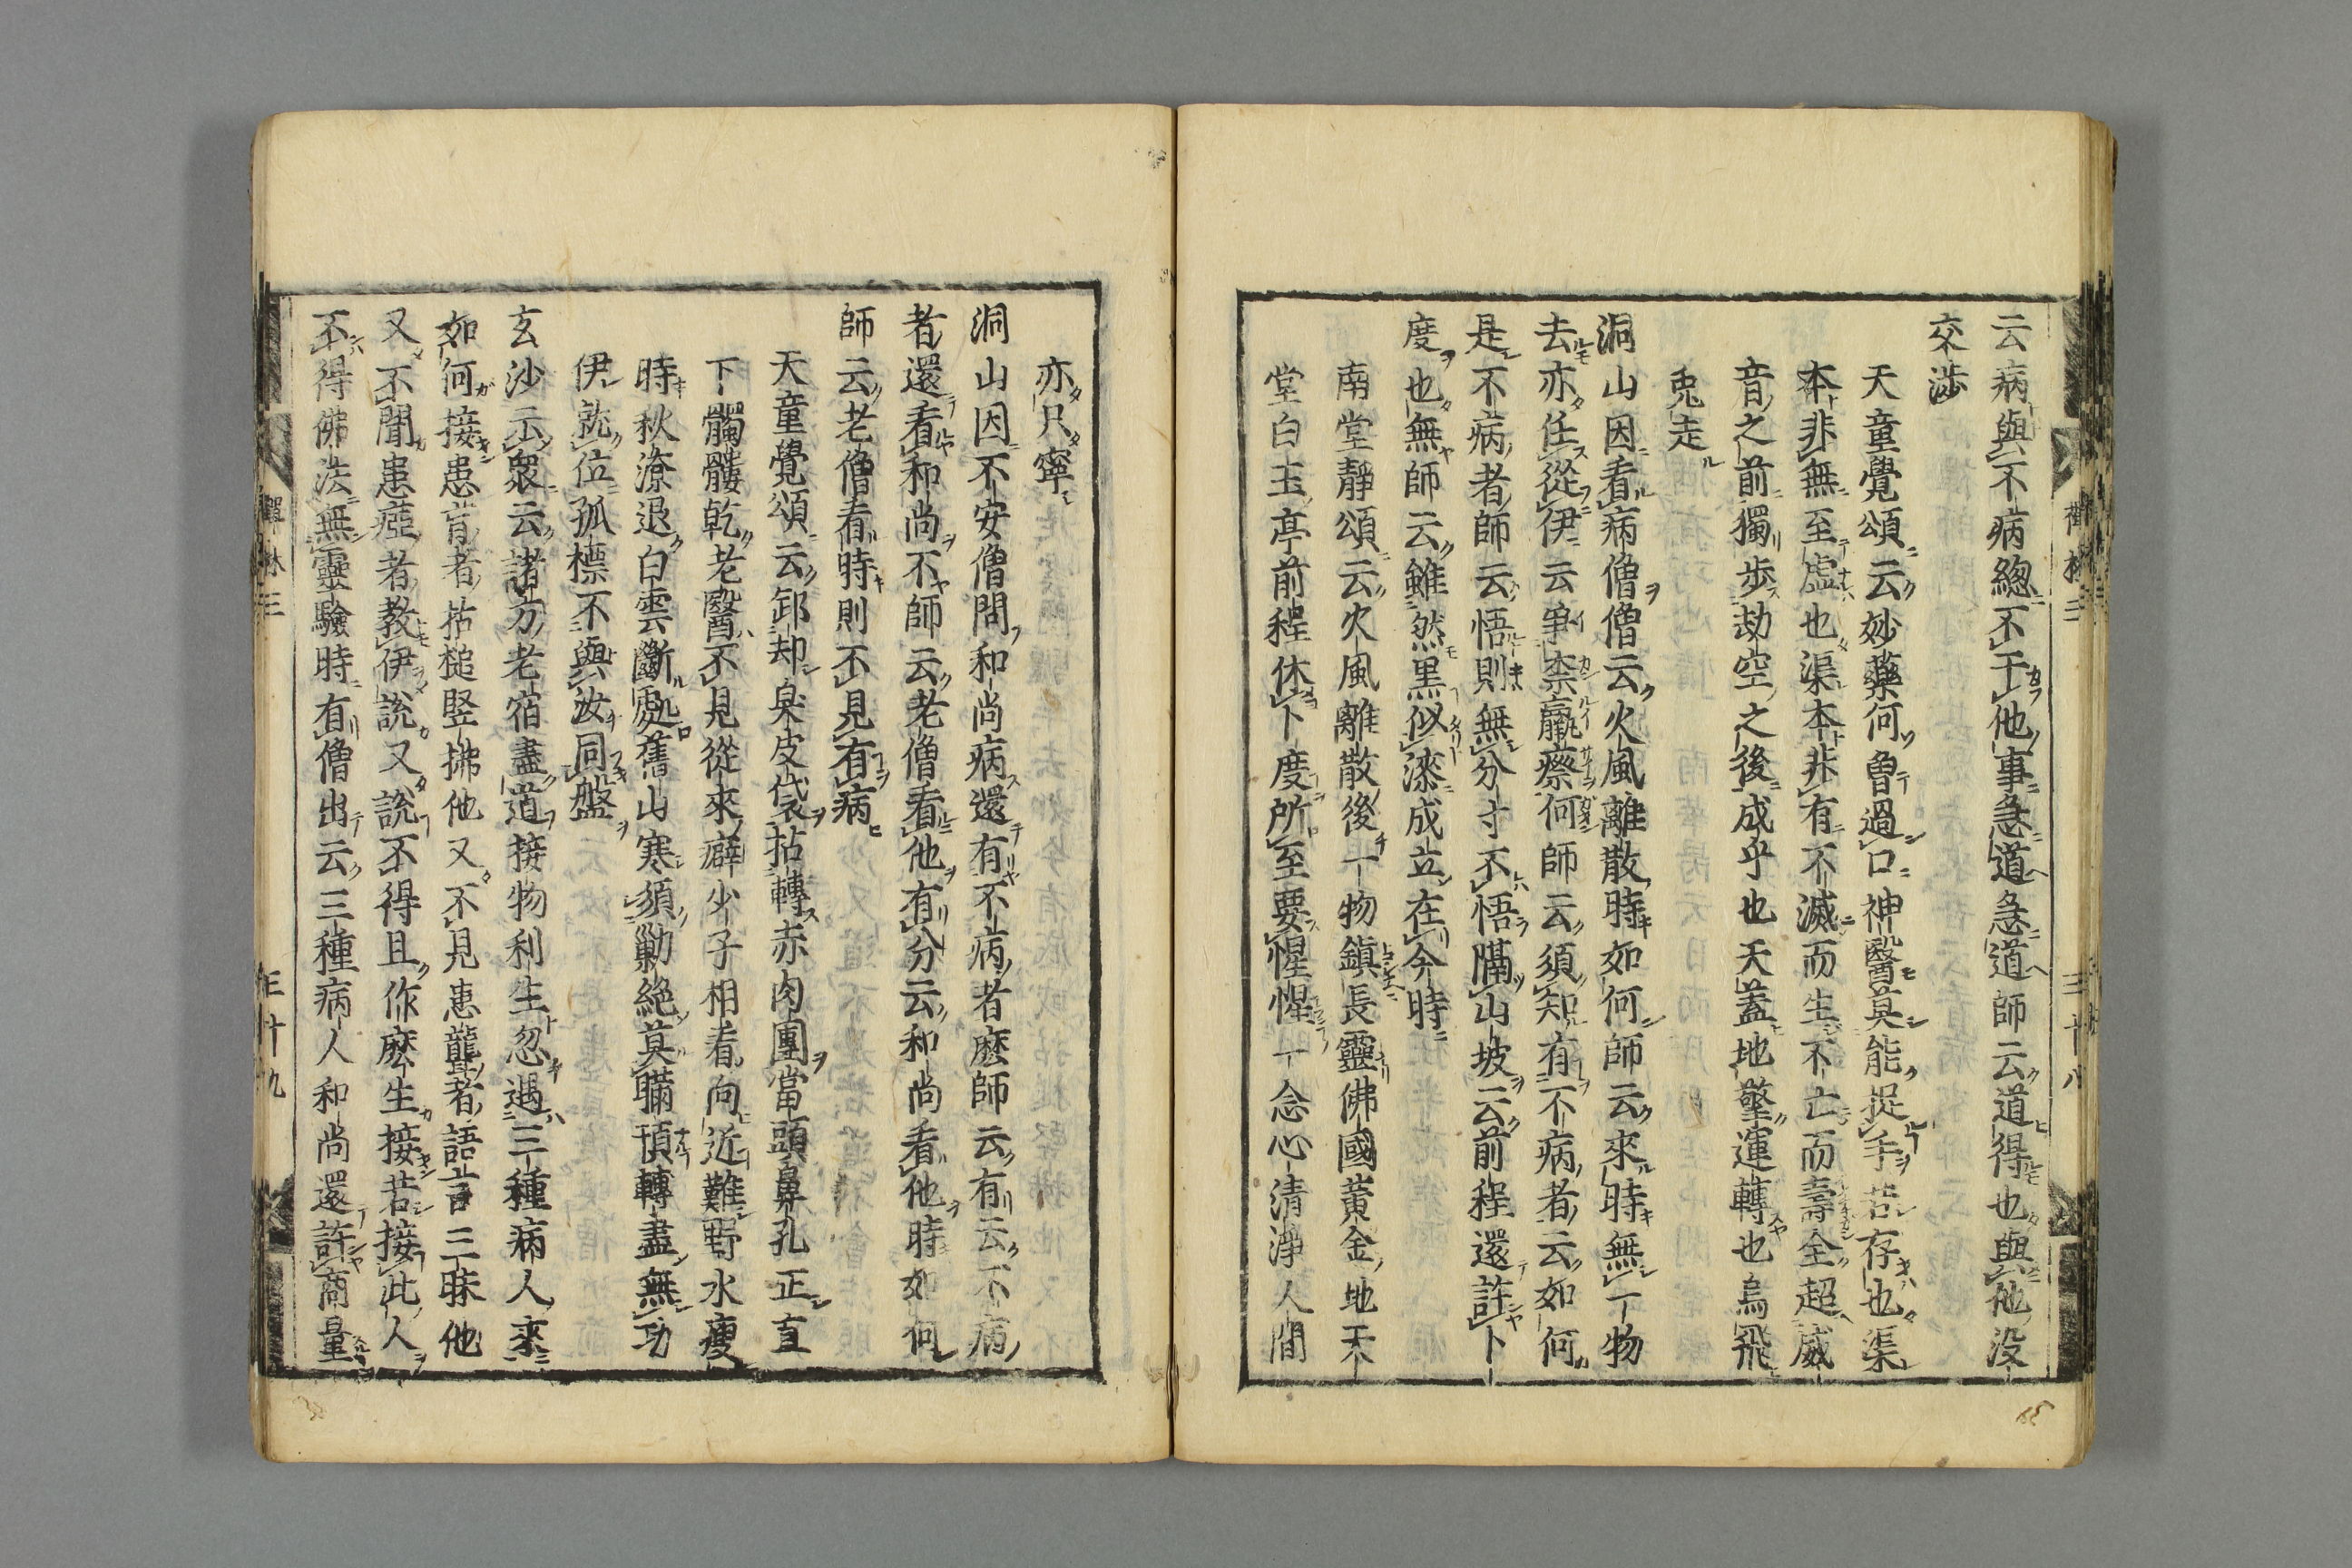 云病與不病總不干他事急道急道師云道得也與他没
交渉
天童覺頌云妙藥何曾過口神醫莫能捉手若存也渠
本非無至虛也渠本非有不滅而生不亡而壽全超威
音之前獨步劫空之後成乎也天蓋地擎運轉也烏飛
兎走
洞山因看病僧僧云火風離散時如何師云來時無一物
去亦任從伊云爭柰羸瘵何師云須知有不病者云如何
是不病者師云悟則無分寸不悟隔山坡云前程還許卜
度也無師云雖然黒似漆成立在今時
南堂靜頌云火風離散後一物鎭長靈佛國黄金地天
堂白玉亭前程休卜度所至要惺惺一念心清淨人間
三十八
亦只寧
洞山因不安僧問和尚病還有不病者麽師云有云不病
者還看和尚不師云老僧看他有分云和尚看他時如何
師云老僧看時則不見有病
天童覺頌云卸却臭皮袋拈轉赤肉團當頭鼻孔正直
下髑髏乾老醫不見從來癖少子相看向近難野水瘦
時秋潦退白雲斷處舊山寒須勦絶莫瞞頇轉盡無功
伊就位孤標不與汝同盤
玄沙示衆云諸方老宿盡道接物利生忽遇三種病人來
如何接患肓者拈槌竪拂他又不見患聾者語言三昧他
又不聞患瘂者教伊說又說不得且作麽生接若接此人
不得佛法無靈驗時有僧出云三種病人和尚還許商量
禪林三
三十九